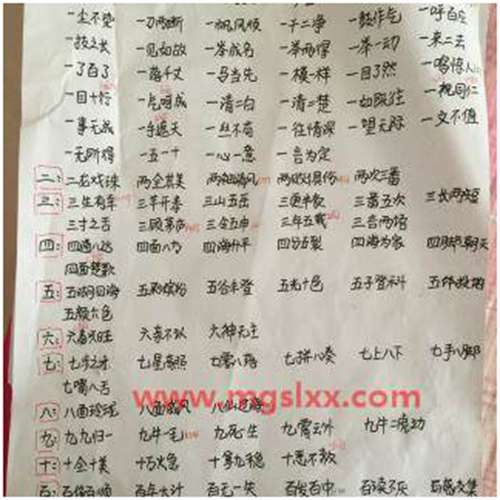 一尘不染 一刀两断 一帆风顺 一干二净 一鼓作气 一呼百应
一技之长 一见如故 一举成名 一举两得 一举一动 一来二去
一了百了 一落千丈 一马当先 一模一样 一目了然 一鸣惊人
一目十行 一气呵成 一清二白 一清二楚 一如既往 一视同仁
一事无成 一手遮天 一丝不苟 一往情深 一望无际 一文不值
一无所得 一五一十 一心一意 一言为定
二: 二龙戏珠 两全其美 两袖清风 两败俱伤 两次三番
三: 三生有幸 三羊开泰 三山五岳 三更半夜 三番五次 三长两短
三寸之舌 三顾茅庐 三令五申 三年五载 三言两语
四: 四通八达 四面八方 四海升平 四分五裂 四海为家 四脚朝天
四面楚歌
五: 五湖四海 五彩缤纷 五谷丰登 五光十色 五子登科 五体投地
五颜六色
六: 六畜兴旺 六亲不认 六神无主
七: 七步之才 七星高照 七零八落 七拼八凑 七上八下 七手八脚
七嘴八舌
www.mgslxx.com
八: 八面玲珑 八面威风 八仙过海
九: 九九归一 九牛一毛 九死一生 九霄云外 九牛二虎
十: 十全十美 十万火急 十拿九稳 十恶不赦
百: 百依百顺 百年大计 百发百中